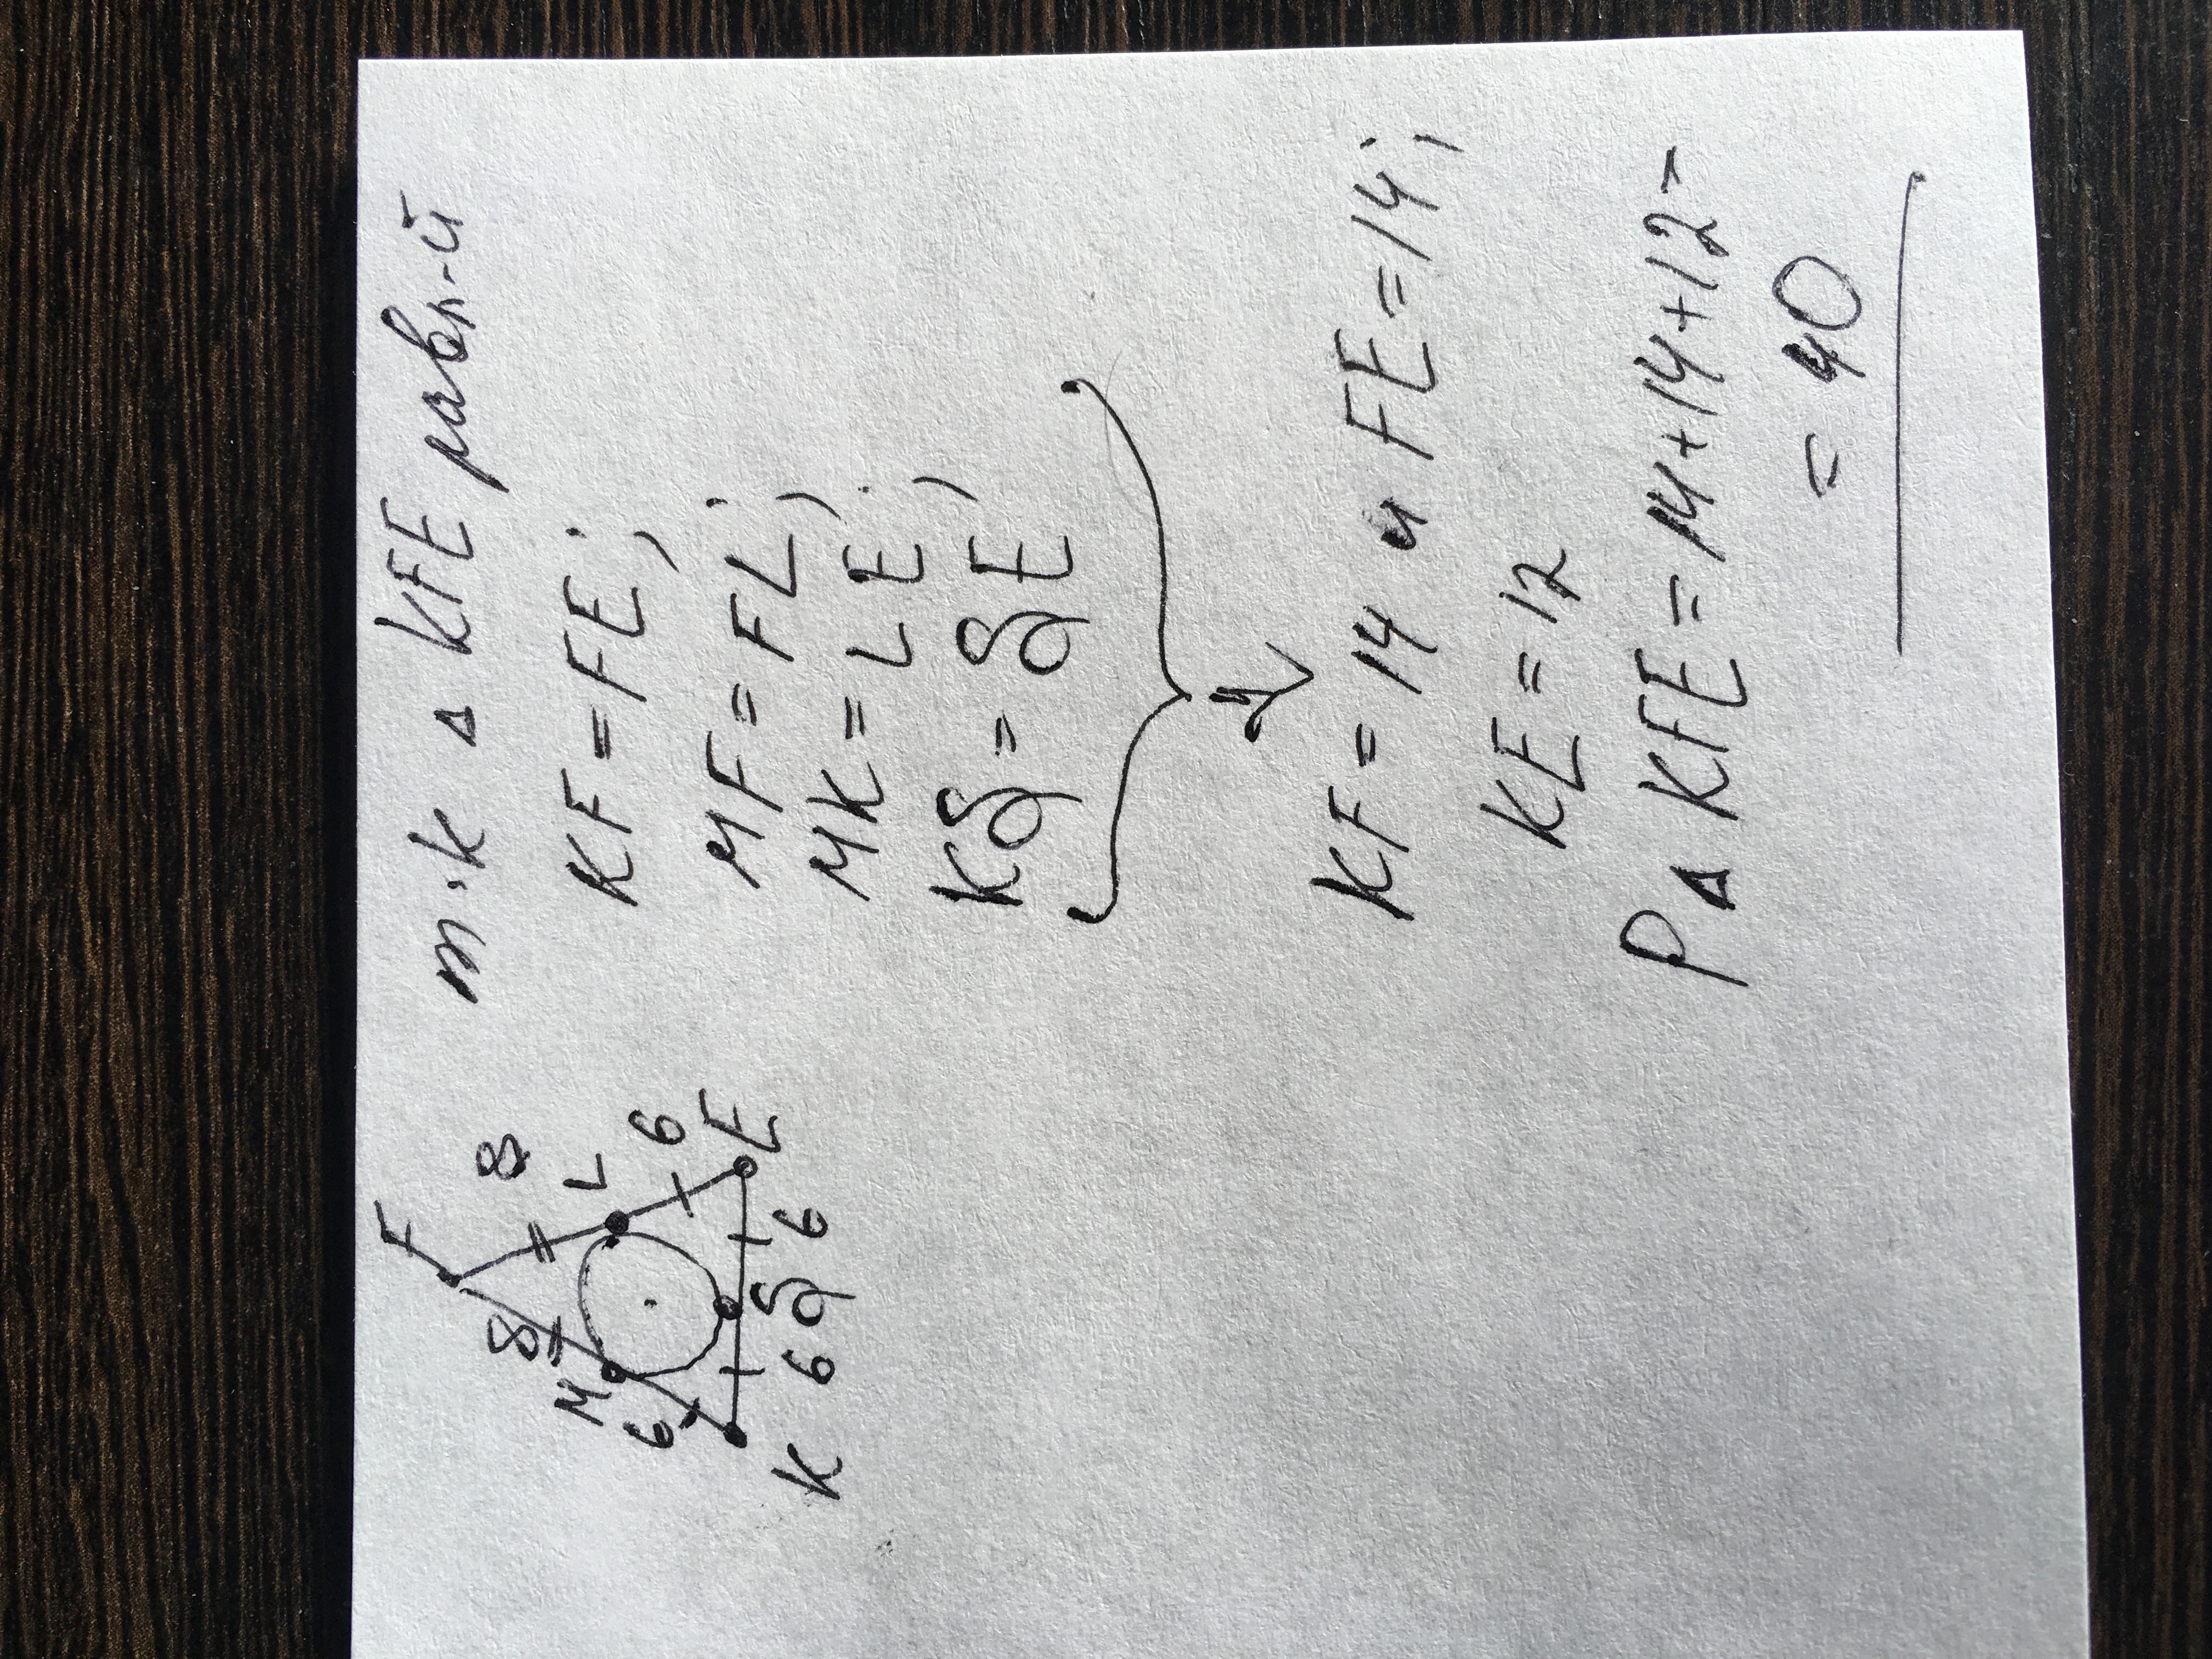 F
8
8
M
L
6
6
K
6
д
6
E
т.к ∆ KFE равн-й
KF = FE;
MF = FL;
MK = LE;
Kд = дE
KF = 14 и FE = 14;
KE = 12
P∆ KFE = 14+14+12=
= 40